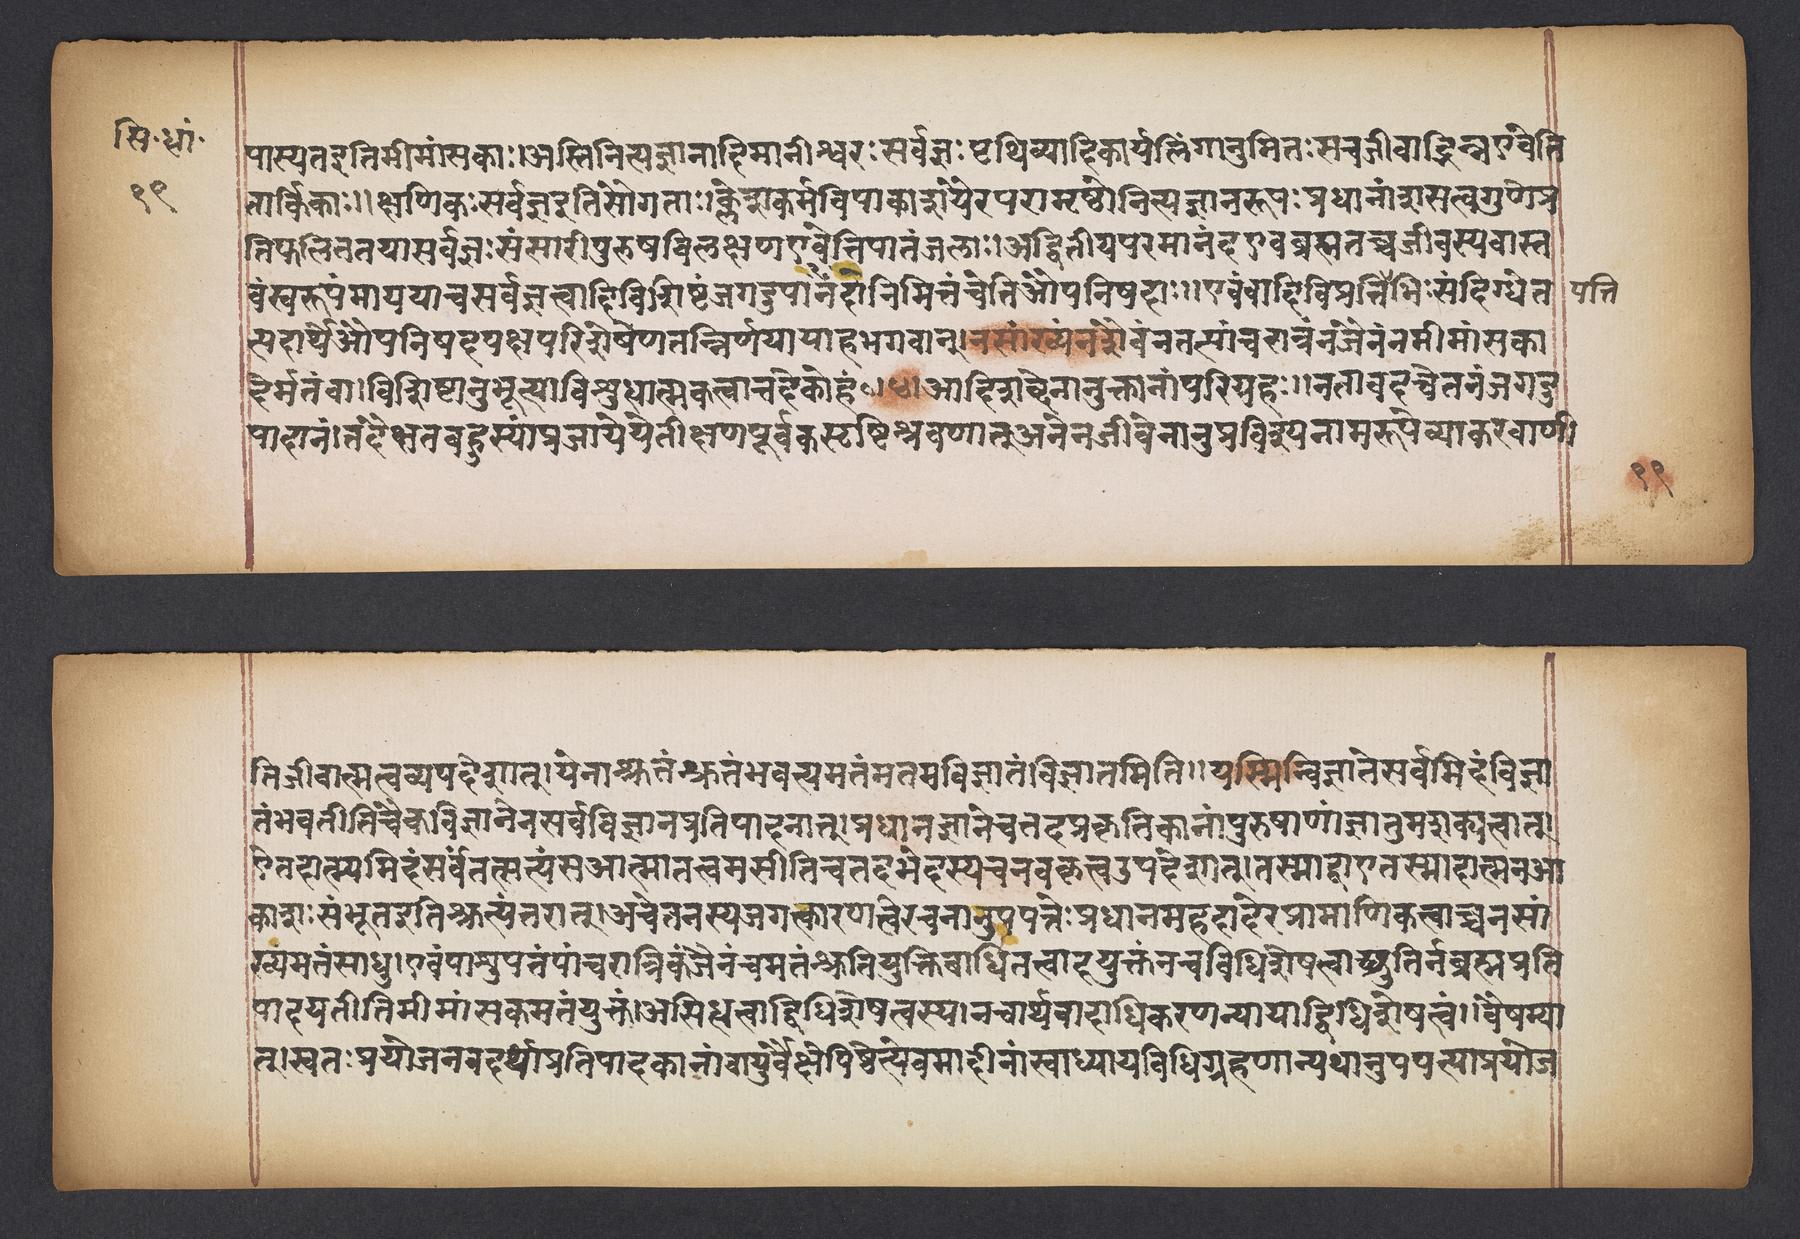 सि·धां·
१९
पास्यतइतिमीमांसकाः।अस्तिनित्यज्ञानादिमानीश्वरःसर्वज्ञःपृथिव्यादिकार्यलिंगानुमितःसचजीवाद्भिन्नएवेति
तार्किकाः॥क्षणिकःसर्वज्ञइतिसौगताः।क्लेशकर्मविपाकाशयैरपरामृष्टोनित्यज्ञानरूपःप्रधानांशसत्वगुणप्र
तिफलिततयासर्वज्ञःसंसारीपुरुषविलक्षणएवेतिपातंजलाः।अद्वितीयपरमानंदएवब्रह्मतच्चजीवस्यवास्त
वंस्वरूपंमाययाचसर्वज्ञत्वादिविशिष्टंजगदुपादानंनिमित्तंचेतिऔपनिषदाः॥एवंवादिविप्रतिभिःसंदिग्धेत पत्ति
त्पदार्थेऔपनिषदपक्षपरिशेषेणतन्निर्णयायाहभगवान्।नसांख्यंनशैवंनतत्पांचरात्रंनजैनंनमीमांसका
देर्मतंवा।विशिष्टानुभूत्याविशुधात्मकत्वात्तदेकोहं०।४।आदिशब्देनानुक्तानांपरिग्रहः॥नतावदचेतनंजगदु
पादानं।तदैक्षतबहुस्यांप्रजायेयेतीक्षणपूर्वकसृष्टिश्रवणात्अनेनजीवेनानुप्रविश्यनामरूपेव्याकरवाणी
१९
तिजीवात्मत्वव्यपदेशात्।येनाश्रुतंश्रुतंभवत्यमतंमतमविज्ञातंविज्ञातमिति॥यस्मिन्विज्ञातेसर्वमिदंविज्ञा
तंभवतीतिचैकविज्ञानेनसर्वविज्ञानप्रतिपादनात्।प्रधानज्ञानेचतदप्रकृतिकानांपुरुषाणांज्ञातुमशक्यत्वात्।
ऐतदात्म्यमिदंसर्वंतत्सत्यंसआत्मातत्त्वमसीतिचतदभेदस्यचनवकृत्वउपदेशात्।तस्माद्वाएतस्मादात्मनआ
काशःसंभूतइतिश्रुत्यंतरात्।अचेतनस्यजगत्कारणत्वेरचनानुपपत्तेःप्रधानमहदादेरप्रामाणिकत्वाच्चनसां
ख्यंमतंसाधु।एवंपाशुपतंपांचरात्रिकंजैनंचमतंश्रुतियुक्तिबाधितत्वादयुक्तंनचविधिशेषत्वाच्छ्रुतिर्नब्रह्मप्रति
पादयतीतिमीमांसकमतंयुक्तं।असिधत्वाद्विधिशेषत्वस्य।नचार्थवादाधिकरणन्यायाद्विधिशेषत्वं।वैषम्या
त्।स्वतःप्रयोजनवदर्थाप्रतिपादकानांवायुर्वैक्षेपिष्ठेत्येवमादीनांस्वाध्यायविधिग्रहणान्यथानुपपत्त्याप्रयोज